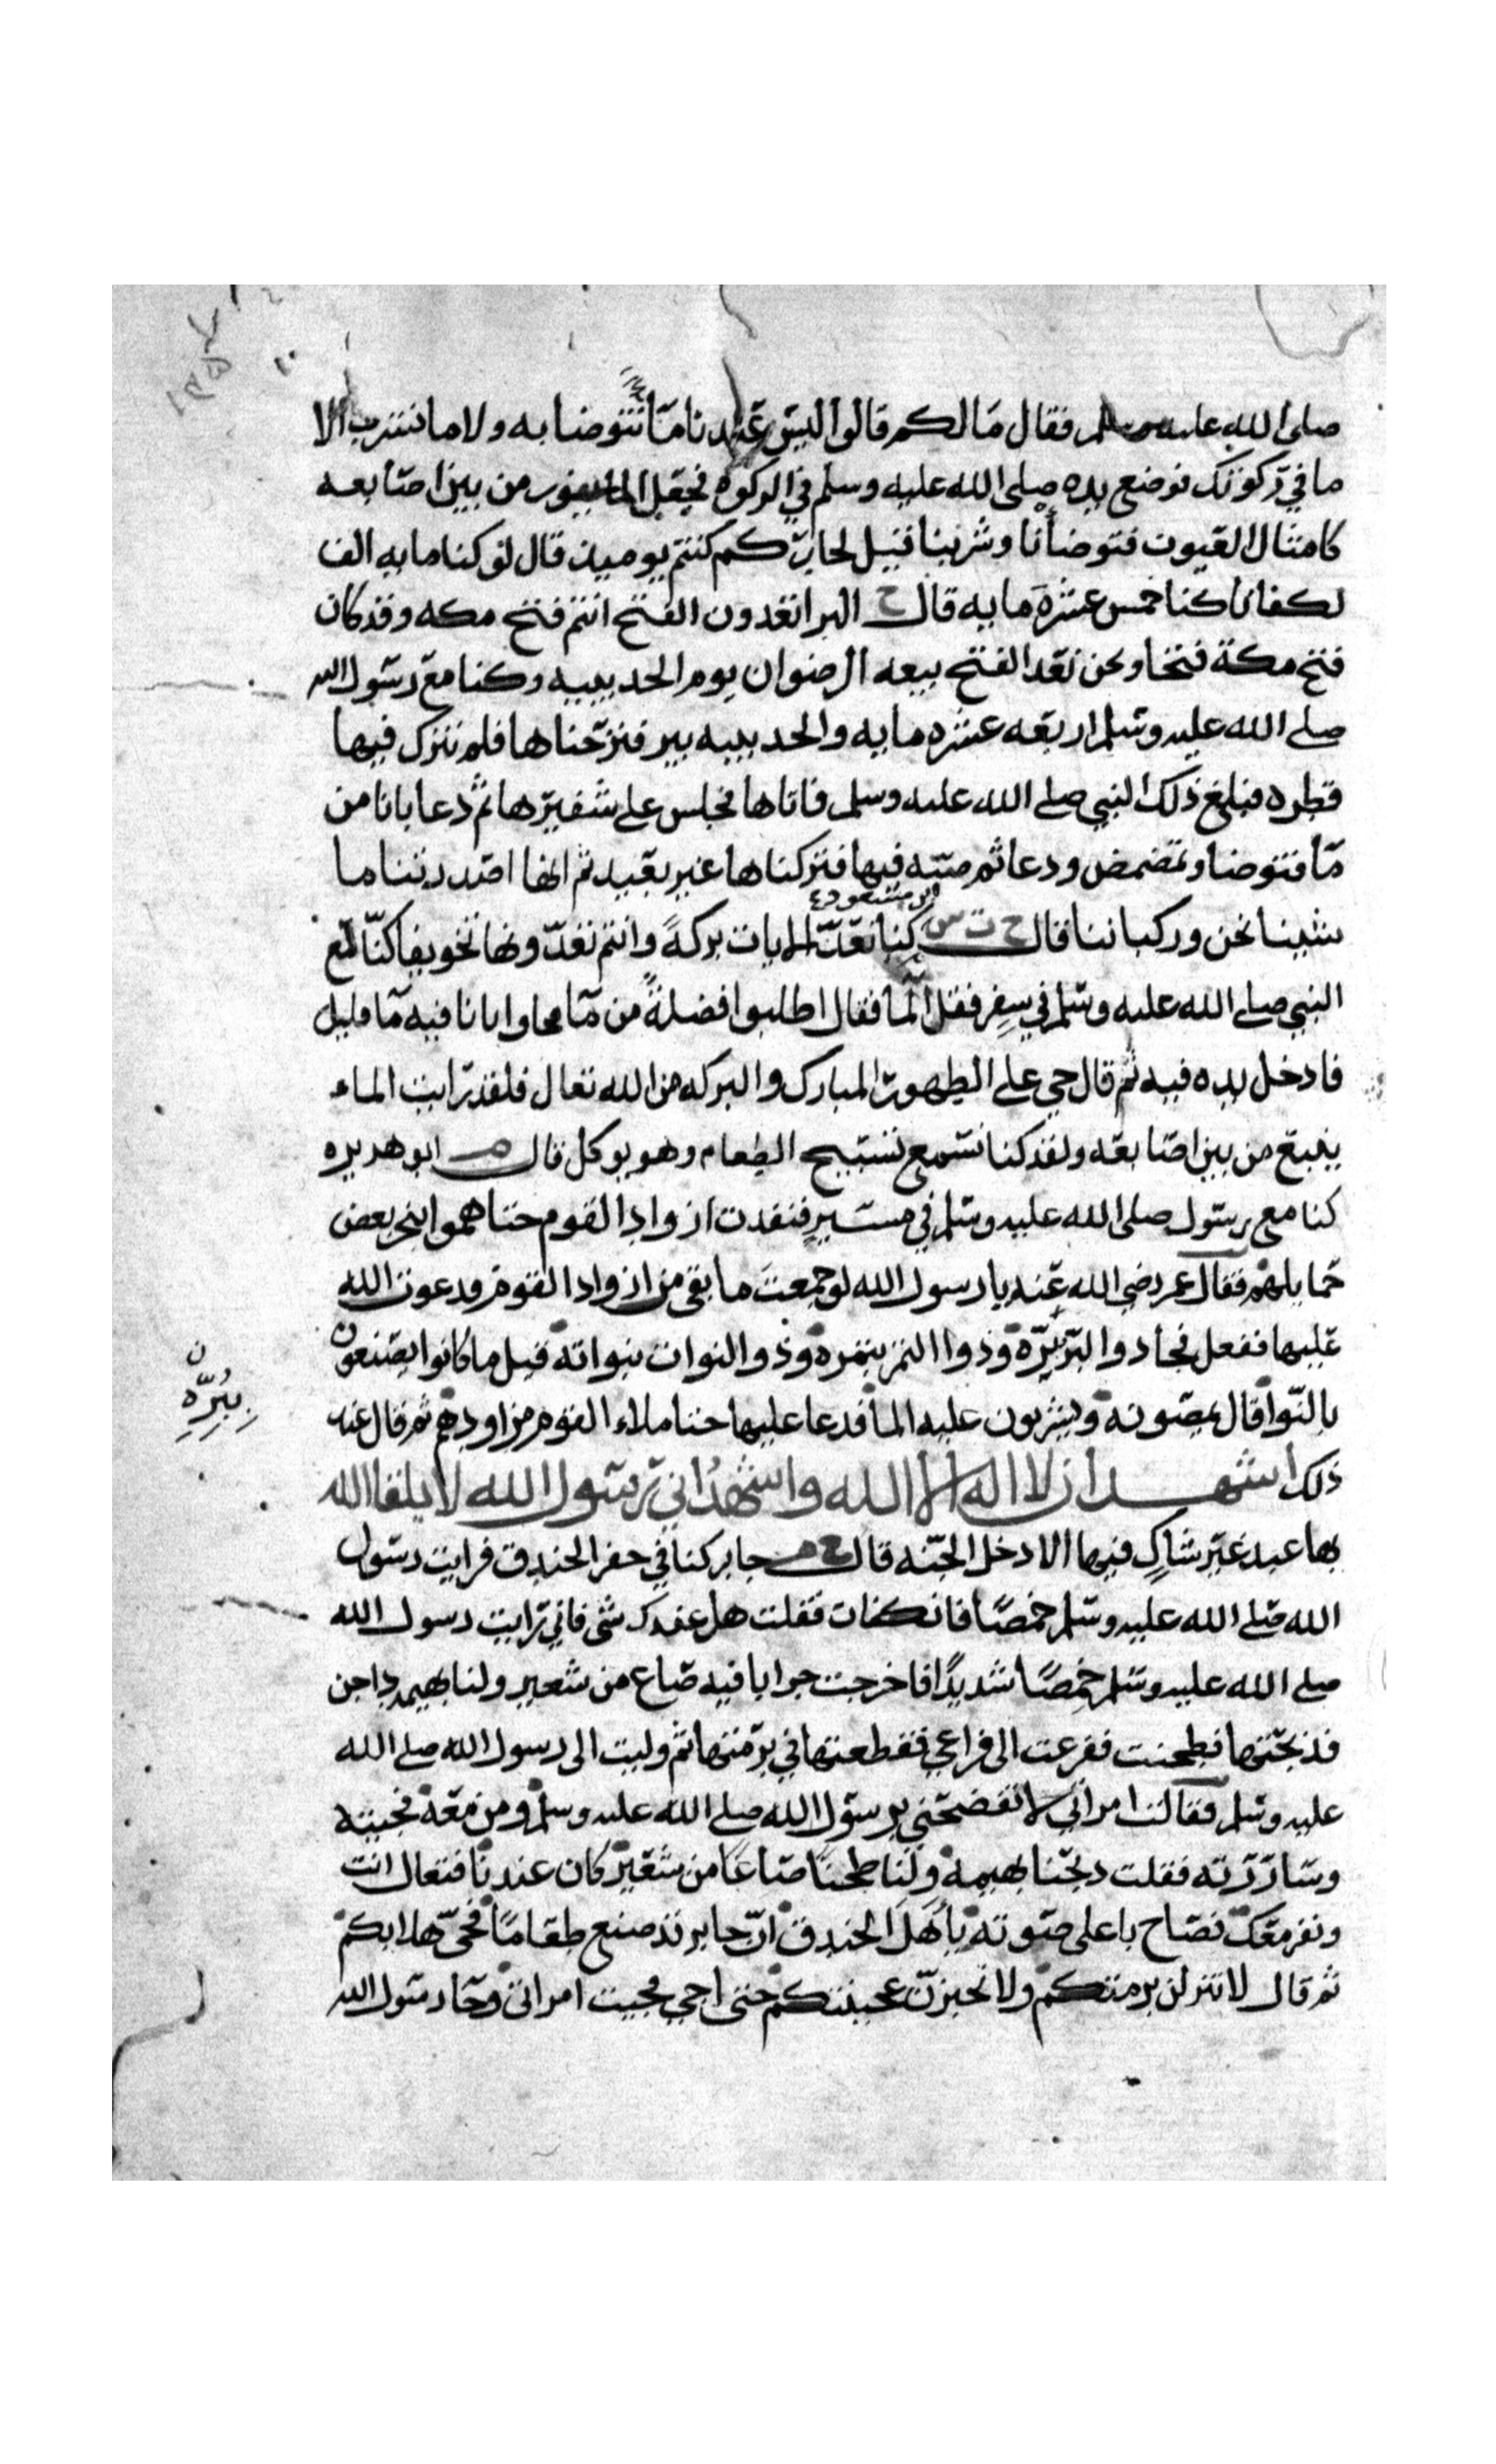 صلى الله عليه وسلم فقال مَالكم قالوا ليسَ عندنا مَأ نتوضا به ولا ما نشرب الا
ما في رَكوتك فوضع يده صلى الله عليه وسلم في الركوة فجعَل الما يفور من بين اصَابعه
كامثال العَيون فتوضأنا وشربنا فقيل لجابرٍ كم كنتم يوميذ قال لو كنا مايه الف
لكفانا كنا خمس عشرَة مايه قال خ البرا تعَدون الفتح انتم فتح مكه وقد كان
فتح مكة فتحا ونحن نعَد الفتح بيعه الرضوان يوم الحديبيه وكنا مع رسَول الله
صلى الله عليه وسَلم اربَعه عشره مايه والحديبيه بير فنزحَناها فلم نترك فيها
قطره فبلغ ذلك النبي صلى الله عليه وسلم فاتاها فجلس على شفيرها ثم دعا بانا من
مَأ فتوضا وتمضمض ودعا ثم صَبه فيها فتركناها غير بعَيد ثم انها اصَدرتنا ما
شينا نحن وركباننا قال خ ت س ابن مسَعود كنا نعَدّ الايات بركةً وانتم تعَدّونها تخويفا كنّا مَع
النبي صلى الله عليه وسَلم في سِفر فقل المأ فقال اطلبوا فضلةً من مَأ فجاوا بانا فيه مَا قليل
فادخل يده فيه ثم قال حي على الطهور المبارك والبركه من الله تعَال فلقد رَايت الماء
ينبع من بين اصَابعَه ولقد كنا نسَمع تسَبيح الطعام وهو يوكل قال م ابو هريره
كنا مع رسَول صلى الله عليه وسَلم في مسَيرٍ فنفدت ازواد القوم حتا هموا بنحر بعض
حَمايلهم فقال عمر رضي الله عَنه يا رسول الله لو جمعتَ ما بقي من ازواد القوم ودعوت الله
عَليها ففعل فجا ذوا البرّ ببُرّه وذوا التمر بتمره وذوالنوات بنواته قيل ما كانوا يصَنعون
بالنّوا قال يمصّونه ويشربون عليه المأ فدعا عليها حتا ملاء القوم مزاودهم ثم قال عند
ذلك اشهد ان لا اله الا الله واشهدُ اني رَسَول الله لا يلقا الله
بها عبد غيَر شاكٍ فيها الا دخل الجنّه قال خ م جابر كنا في حفر الخندق فرايت رسَول
الله صَلى الله عليه وسَلم خمصَاً فانكفات فقلت هل عندك شى فاني رَايت رسول الله
صلى الله عليه وسَلم خمِصَاً شديدًا فاخرجت جرابا فيه صَاع من شعير ولنا بهيمه داجن
فذبحَتها فطحنت ففرغت الى فراغي فقطعتها في برمَتها ثم وليت الى رسول الله صلى الله
عليه وسَلم فقالت امراتي لا تفضحَني برسَول الله صلى الله عليه وسلم ومن مَعَه فجيته
وسَارَرَته فقلت ذبحَنا بهيمة ولنا طحنَا صَاعَاً من شعَير كان عندنا فتعال انت
ونفر مَعَك فصَاح باعلى صَوته يا أهَلَ الخندق انّ جابر قد صنع طعَامًا فحيّ هلا بكم
ثم قال لا تنزلن برمتكم ولا تخبزنّ عجينتكم حتى اجي فجيت امراتى وجَا رسَول الله
ن
بِبُرِّهِ